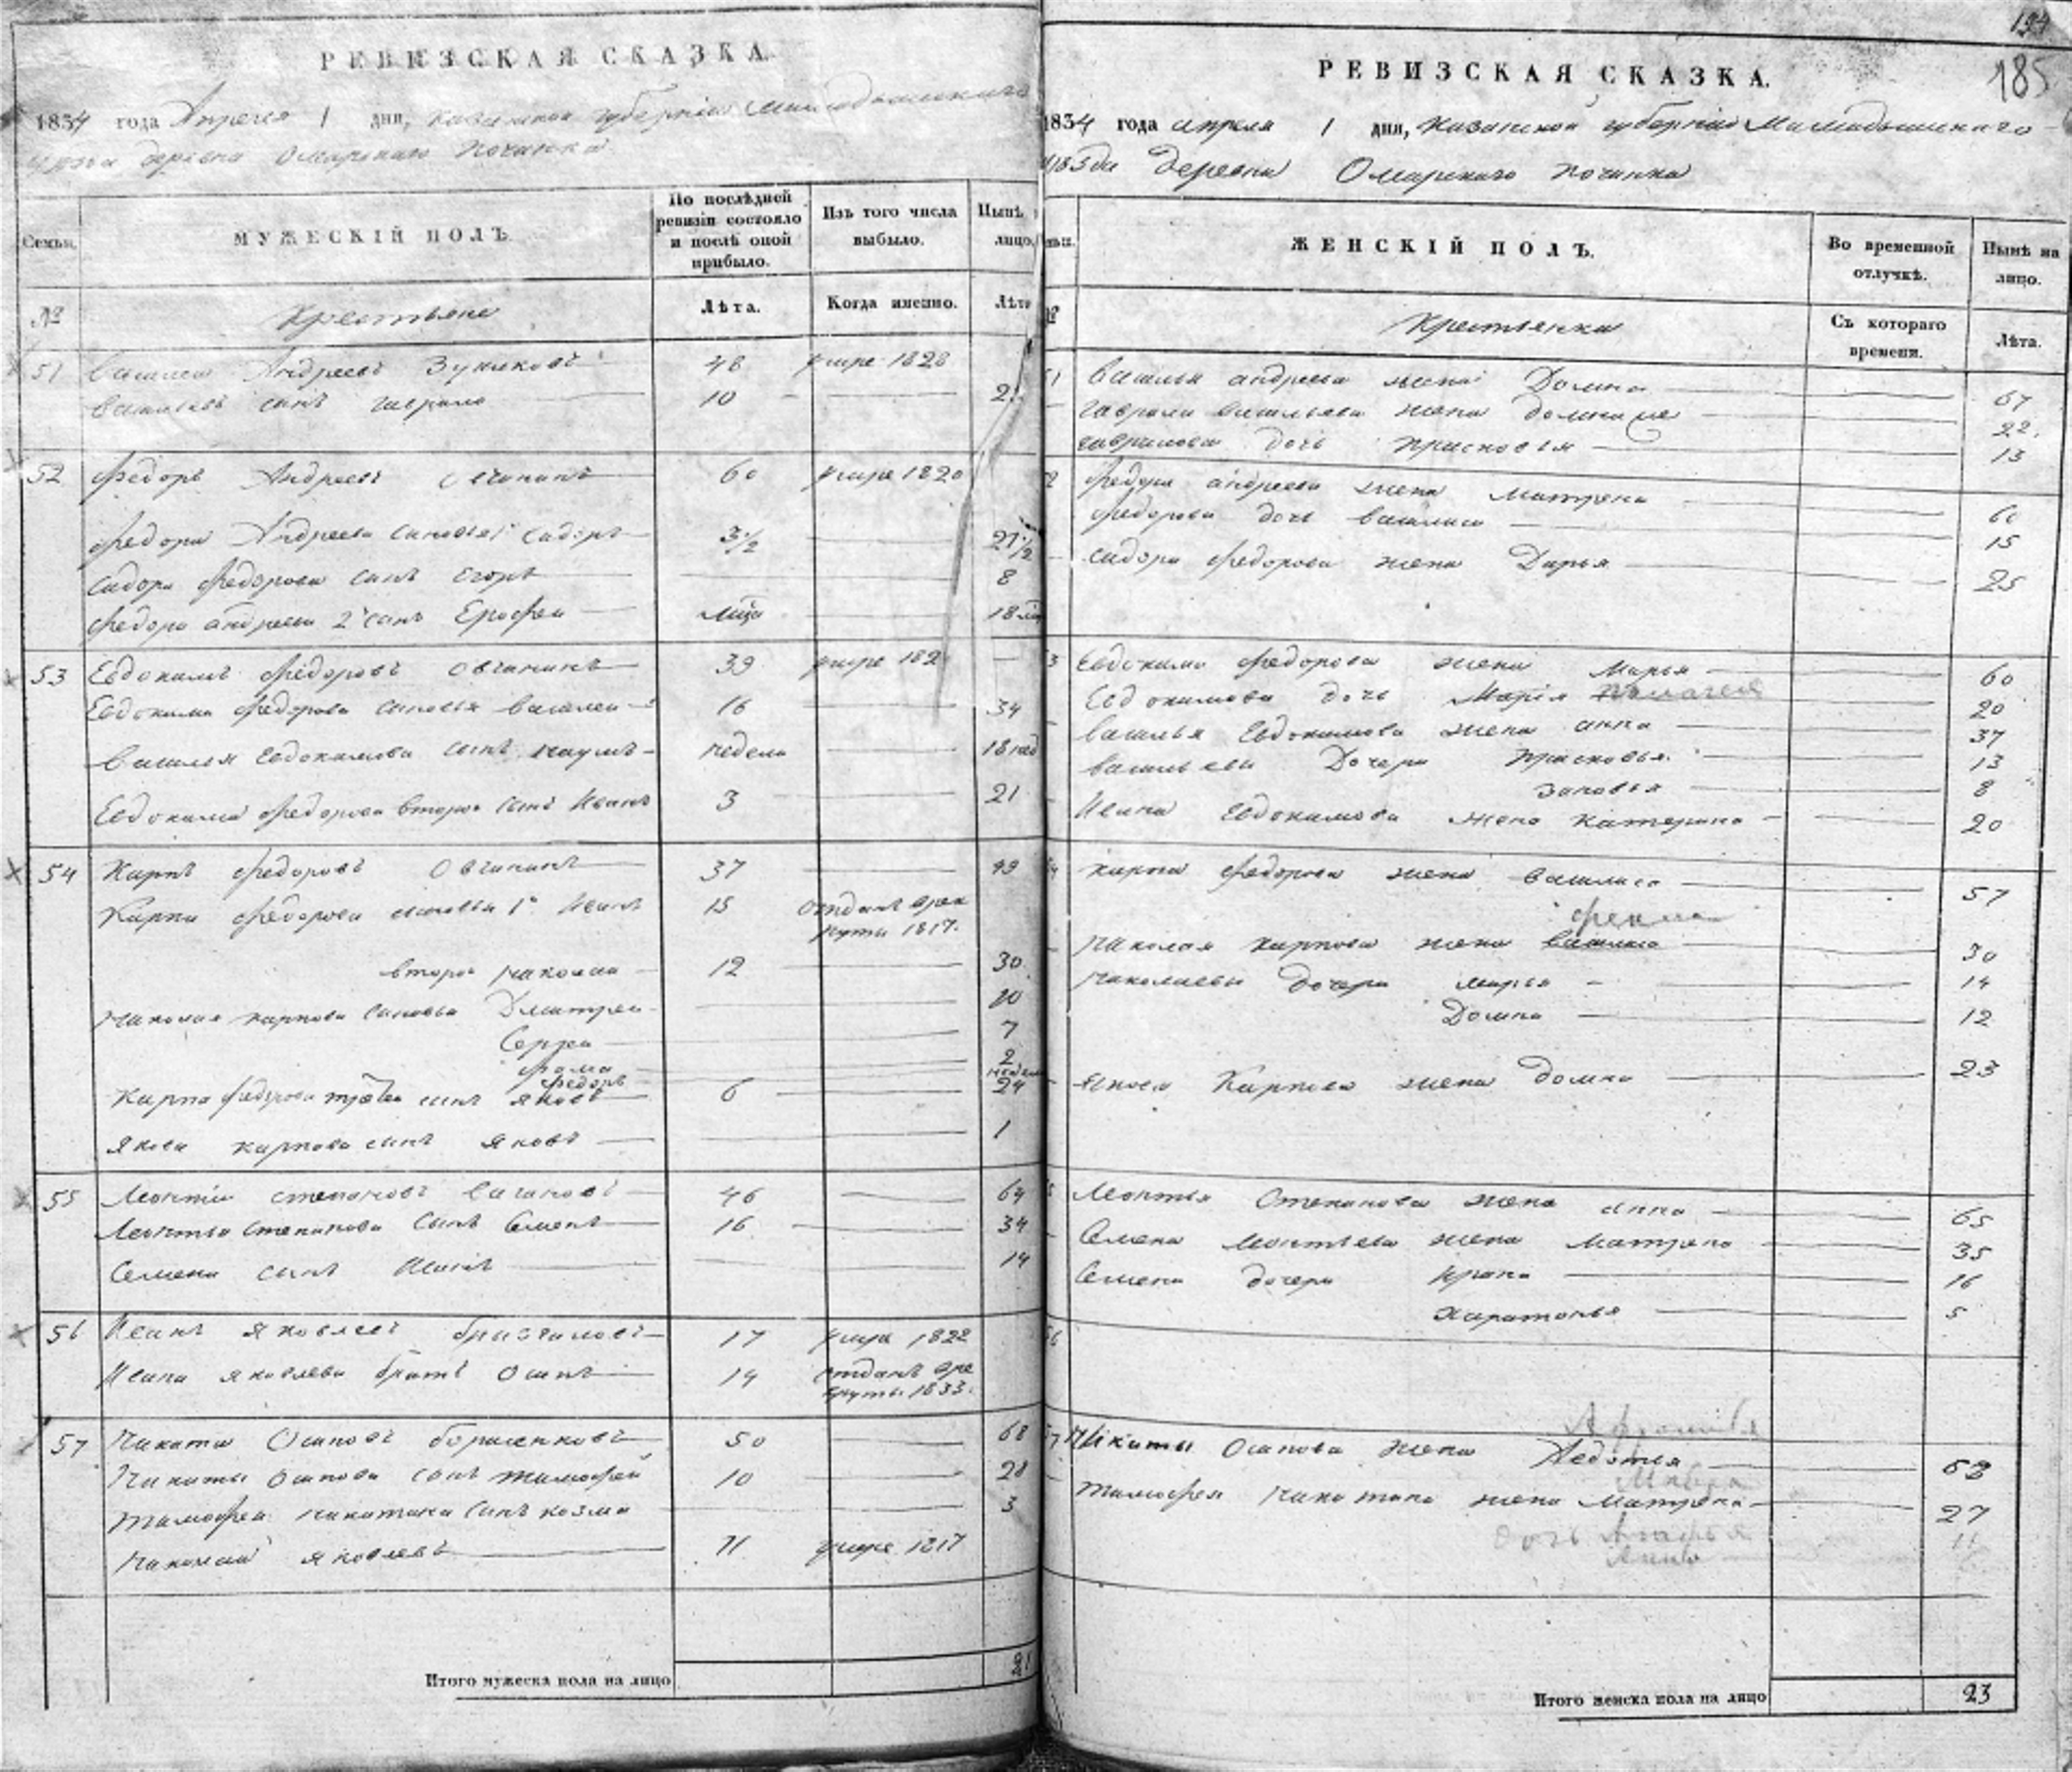 РЕВИЗСКАЯ СКАЗКА.
1834 года Апреля 1 дня, казанской губернии Мамадышского
уезда деревни Омарскаго починка
Семьи.
МУЖЕСКІЙ ПОЛЪ.
По послѣдней ревизіи состояло и послѣ оной прибыло.
Изъ того числа выбыло.
Нынѣ
лицо.
№
Крестьяне
Лѣта.
Когда именно.
Лѣта
51 Василеи Андреевъ 48 умре 1828
Васильевъ сынъ гаврила 10
52 Федоръ Андреевъ Овчининъ 60 умре 1820
Федора Андреева сыновья 1й Сидоръ 3 1/2 21 1/2
Сидора Федорова сынъ Егоръ 8
Федора андреева 2й сынъ Ерофеи 18
53 Евдокимъ Федоровъ Овчининъ 39 умре 182
Евдокима Федорова сыновья Василеи 16 34
Василья Евдокимова сынъ наумъ недели 18 нед
Евдокима Федорова второи сынъ Иванъ 3 21
54 Карпъ Федоровъ Овчининъ 37
Карпа Федорова сыновья 1й Иванъ 15 отданъ врек
руты 1817.
второи николаи 12 30
Николая карпова сыновья Дмитреи 10
Сергеи 7
Фома 2
Федоръ недели
Карпа Федорова третеи сынъ яковъ 6 24
Якова карпова сынъ яковъ 1
55 Леонтіи степановъ 46 64
Леонтья степанова сынъ Семенъ 16 34
Семена сынъ Иванъ 14
56 Иванъ яковлевъ 17 умре 1822
Ивана яковлева братъ Осипъ 14 отданъ вре
круты 1833.
57 Никита Осиповъ 50 68
Никиты Осипова сынъ тимофеи 10 28
тимофеи никитина сынъ козма 3
Николаи яковлевъ 71 умре 1817
Итого мужеска пола на лицо 21
194
185
РЕВИЗСКАЯ СКАЗКА.
1834 года апреля 1 дня, Казанской губерніи Мамадышскаго
уезда деревни Омарскаго починка
ЖЕНСКІЙ ПОЛЪ.
Во временной отлучкѣ.
Нынѣ на лицо.
Крестьянки
Съ котораго времени.
Лѣта.
Василья андреева жена Домна 67
гаврила васильева жена 22.
гаврилова дочь прасковья 13
Федора андреева жена матрена 60
Федорова дочь василиса 15
сидора Федорова жена Дарья 25
Евдокима Федорова жена Марья 60
Евдокимова дочь Марія 20
василья Евдокимова жена анна 37
васильевы Дочери прасковья 13
зиновья 8
Ивана Евдокимова жена катерина 20
карпа Федорова жена василиса 57
николая карпова жена василиса 30
николаевы дочери марья 14
Домна 12
якова Карпова жена домна 23
Леонтья Степанова жена анна 65
Семена Леонтьева жена матрена 35
Семена дочери Ирина 16
харитонья 5
Никиты Осипова жена Авдотья
Мавра
тимофея никитина жена матрена 27
дочь
Анна
Итого женска пола на лицо 23